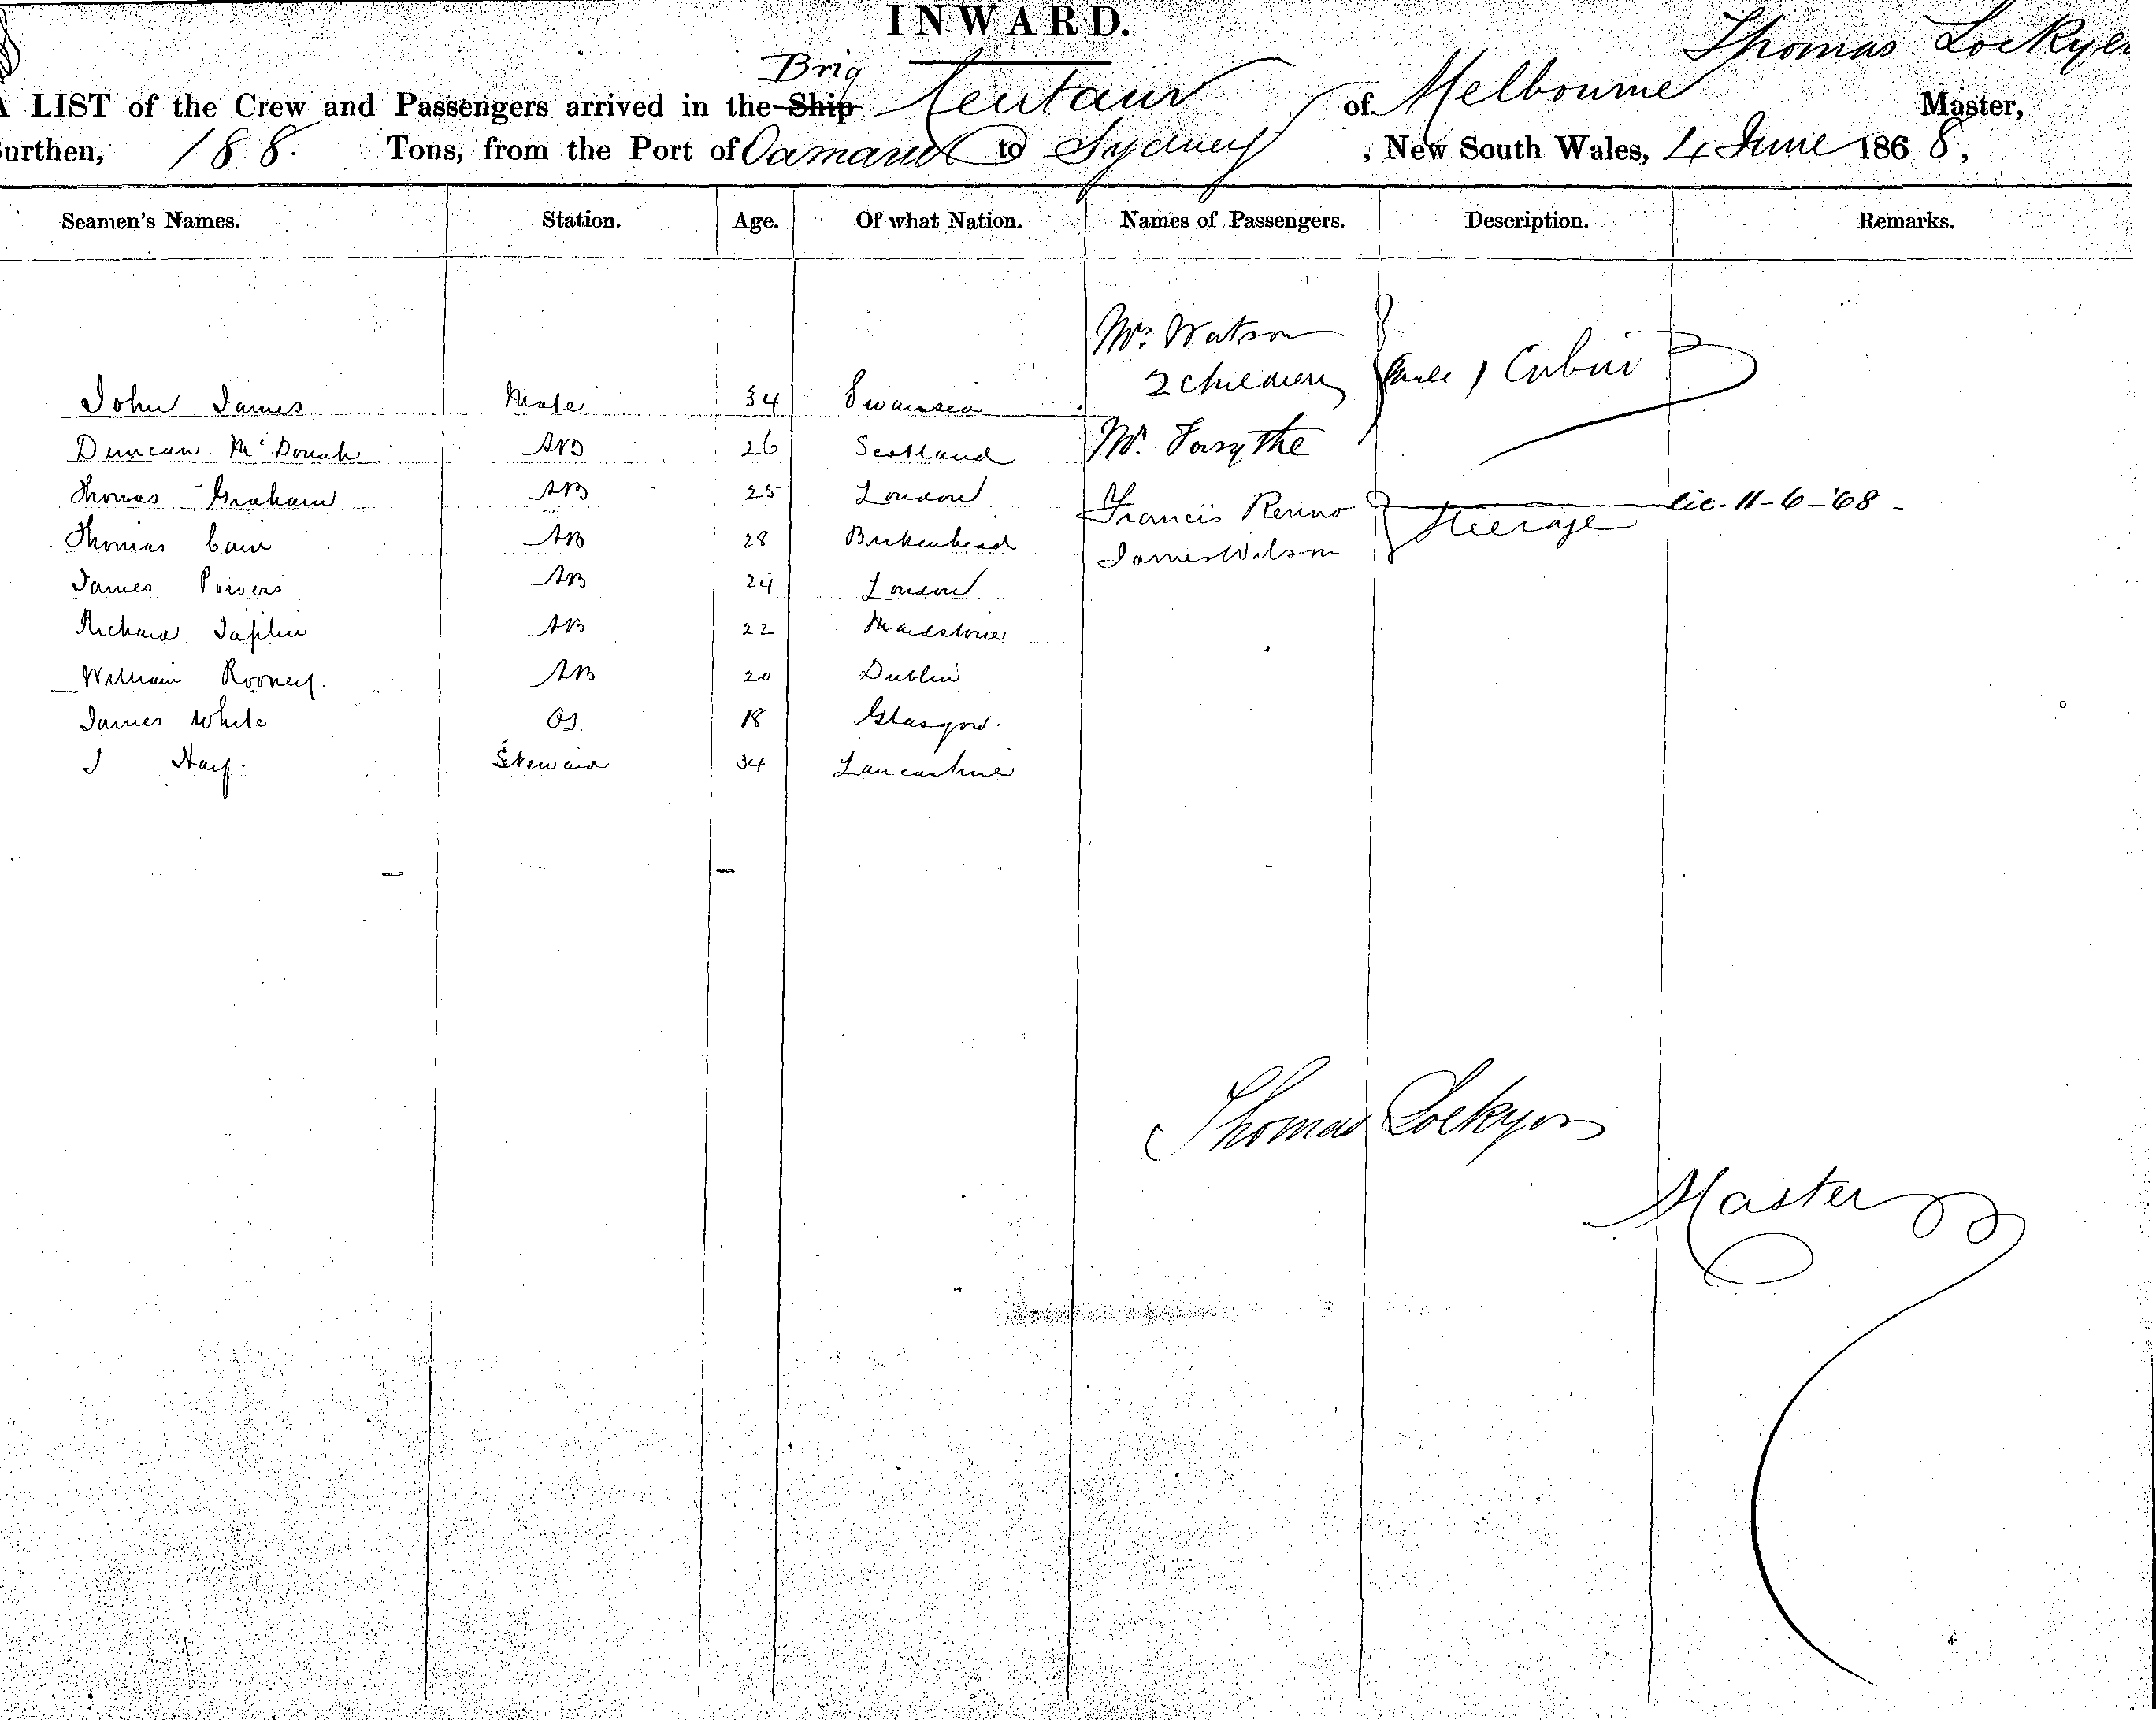 INWARD.
Thomas Lockyer
Brig
A LIST of the Crew and Passengers arrived in the Ship Centaur of Melbourne Master,
urthen, 188. Tons, from the Port of Oamaru to Sydney, New South Wales, 4 June 1868,
Seamen's Names. Station. Age. Of what Nation. Names of Passengers. Description. Remarks.
Watson
2 Children Cabin
John James Mate 34 Swansea
Mr. Forsythe
Duncan AB 26 Scotland
Thomas Graham AB 25 London
Francis lic. 11-6-'68 -
Steerage
Thomas Cain AB 28 Birkenhead
James Wilson
James Powers AB 24 London
Richard Taplin AB 22 Maidstone
William Rooney. AB 20 Dublin
James White OS. 18 Glasgow.
J Hay. Steward 34 Lancashire
Thomas Lockyer
Master